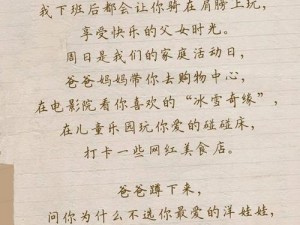 我下班后都会让你骑在肩膀上玩，
享受快乐的父女时光。
周日是我们的家庭活动日，
爸爸妈妈带你去购物中心，
在电影院看你喜欢的“冰雪奇缘”，
在儿童乐园玩你爱的碰碰床，
打卡一些网红美食店。
爸爸蹲下来，
问你为什么不选你最爱的洋娃娃，